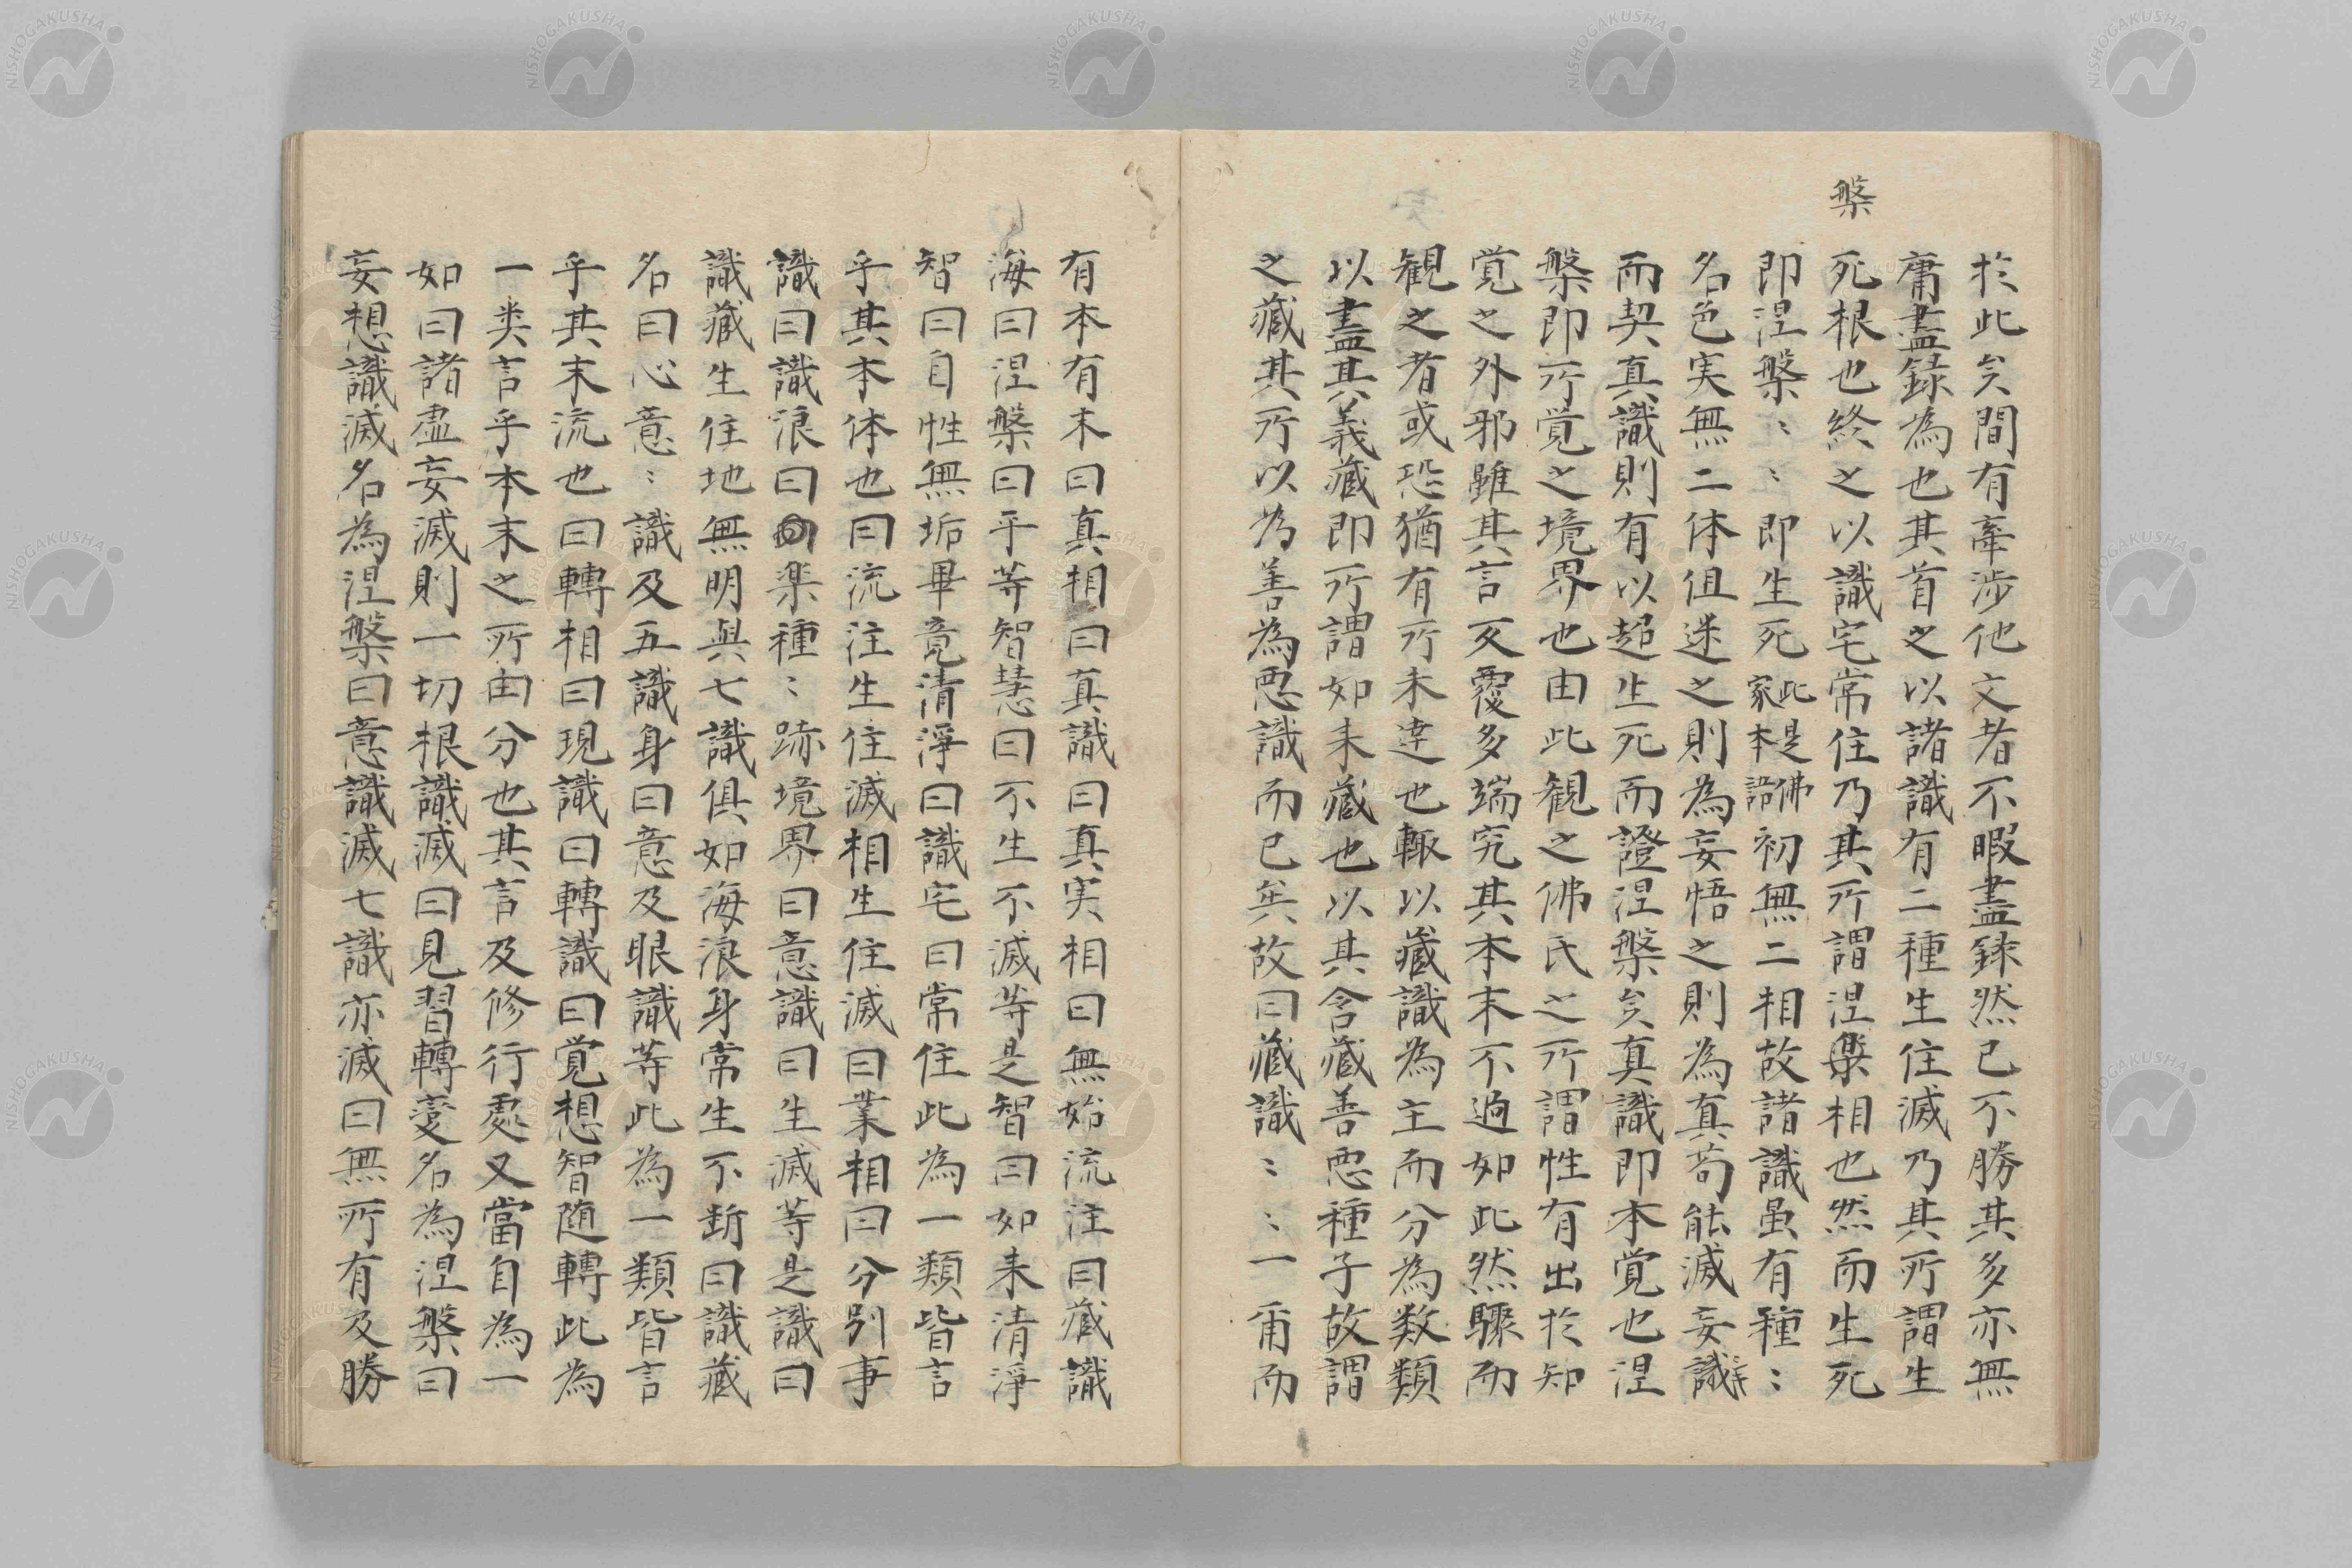 槃
於此矣間有牽涉他文者不暇盡録然已不勝其多亦無
庸盡録為也其首之以諸識有二種生住滅乃其所謂生
死根也終之以識宅常住乃其所謂涅槃相也然而生死
即涅槃〻〻即生死此是佛家本語初無二相故諸識虽有種〻
名色実無二体但迷之則為妄悟之則為真苟能滅妄識
而契真識則有以超生死而證涅槃矣真識即本覚也涅
槃即所覚之境界也由此観之佛氏之所謂性有出於知
覚之外邪雖其言反覆多端究其本末不過如此然驟而
観之者或恐猶有所未達也輙以藏識為主而分為数類
以盡其義藏即所謂如来藏也以其含藏善悪種子故謂
之藏其所以為善為悪識而已矣故曰藏識〻〻一而而
有本有末曰真相曰真識曰真実相曰無始流注曰藏識
海曰涅槃曰平等智慧曰不生不滅等是智曰如来清淨
智曰自性無垢畢竟清淨曰識宅曰常住此為一類皆言
乎其本体也曰流注生住滅相生住滅曰業相曰分別事
識曰識浪曰楽種〻跡境界曰意識曰生滅等是識曰
識藏生住地無明與七識俱如海浪身常生不断曰識藏
名曰心意〻識及五識身曰意及眼識等此為一類皆言
乎其末流也曰轉相曰現識曰轉識曰覚想智随轉此為
一类言乎本末之所由分也其言及修行處又當自為一
如曰諸虚妄滅則一切根識滅曰見習轉変名為涅槃曰
妄想識滅名為涅槃曰意識滅七識亦滅曰無所有及勝